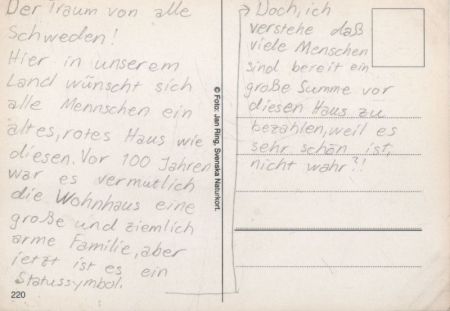 Der Traum von alle
Schweden!
Hier in unserem
Land wünscht sich
alle Mennschen ein
altes, rotes Haus wie
diesen. Vor 100 Jahren
war es vermutlich
die Wohnhaus eine
große und ziemlich
arme Familie, aber
jetzt ist es ein
Statussymbol.
220
© Foto: Jan Ring, Svenska Naturkort.
→ Doch, ich
verstehe daß
viele Menschen
sind bereit ein
große Summe vor
diesen Haus zu
bezahlen, weil es
sehr schön ist,
nicht wahr?!